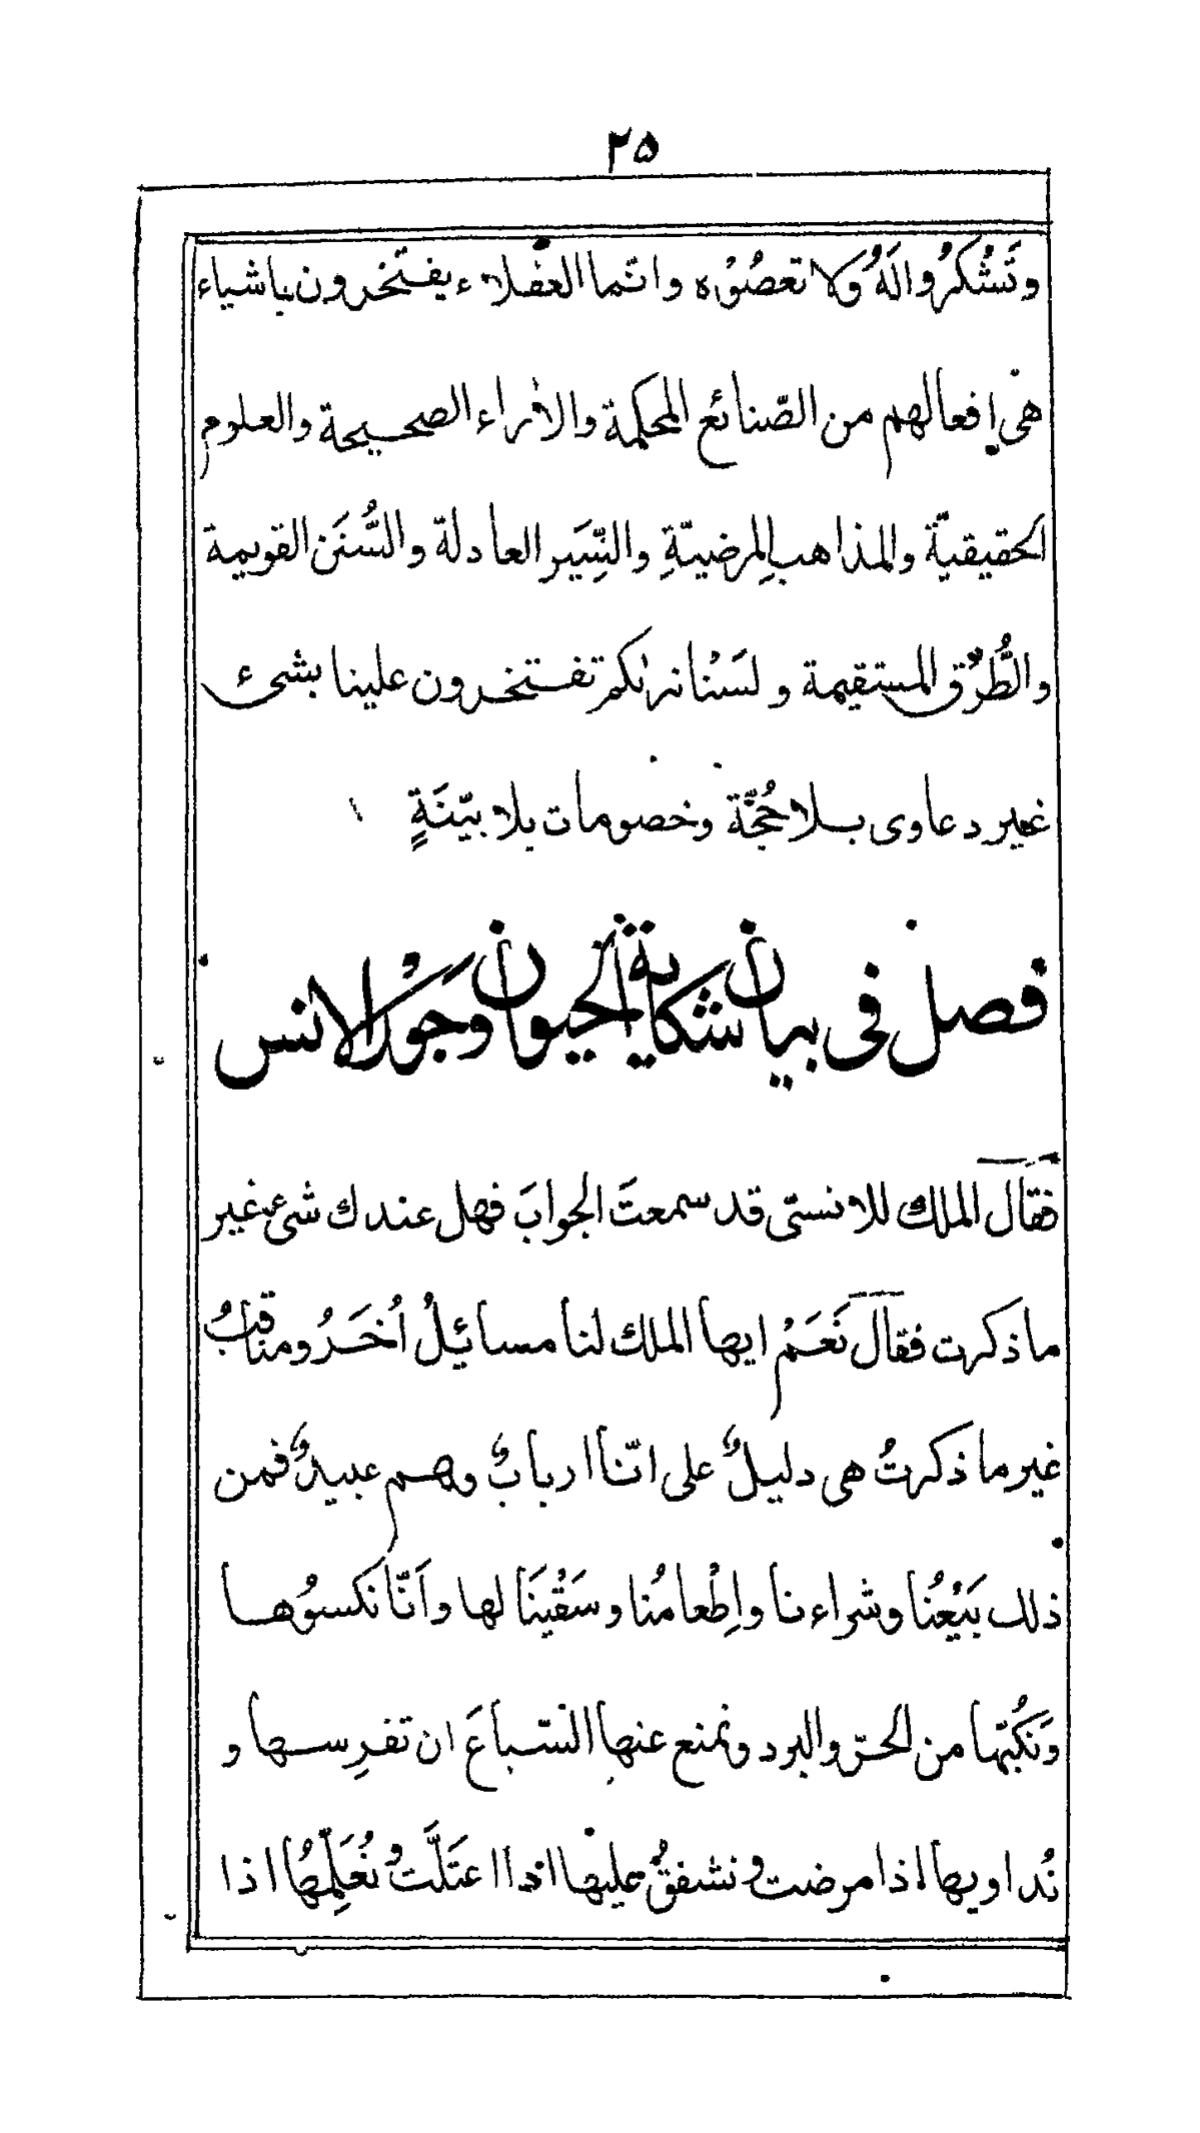 ٢٥
وتَشْكُرُوا لَهُ وَلا تعصُوْه وانّما العقلاء يفتخرون باشياء
هى افعالهم من الصّنائع المحكمة والاٰراء الصحيحة والعلوم
الحقيقيّة والمذاهب المرضيّةِ والسِّيَر العادلة والسُّنَن القويمة
والطُّرُق المستقيمة ولَسْنا نراكم تفتخرون علينا بشئ
غير دعاوى بلا حُجَّة وخصومات بلا بيّنَةٍ
فصل فى بيان شكاية الحيوان وجَوْر الانس
فقال الملك للانسىّ قد سمعتَ الجوابَ فهل عندك شئ غير
ما ذكرت فقال نَعَمْ ايها الملك لنا مسائِلُ اُخَرُ ومناقبُ
غير ما ذكرتُ هى دليلٌ على انّنا اربابٌ وهم عبيدٌ فمن
ذلك بَيْعُنا وشراءنا واِطْعامُنا وسَقْيَنَا لها واَنّا نكسوُها
وَنَكُنّها من الحرّ والبرد ونمنع عنها السّباعَ ان تفرِسها و
نُداويها اذا مرضت ونشفقُ عليها اذا اعتَلَّت ونُعَلِّمهُا اذا